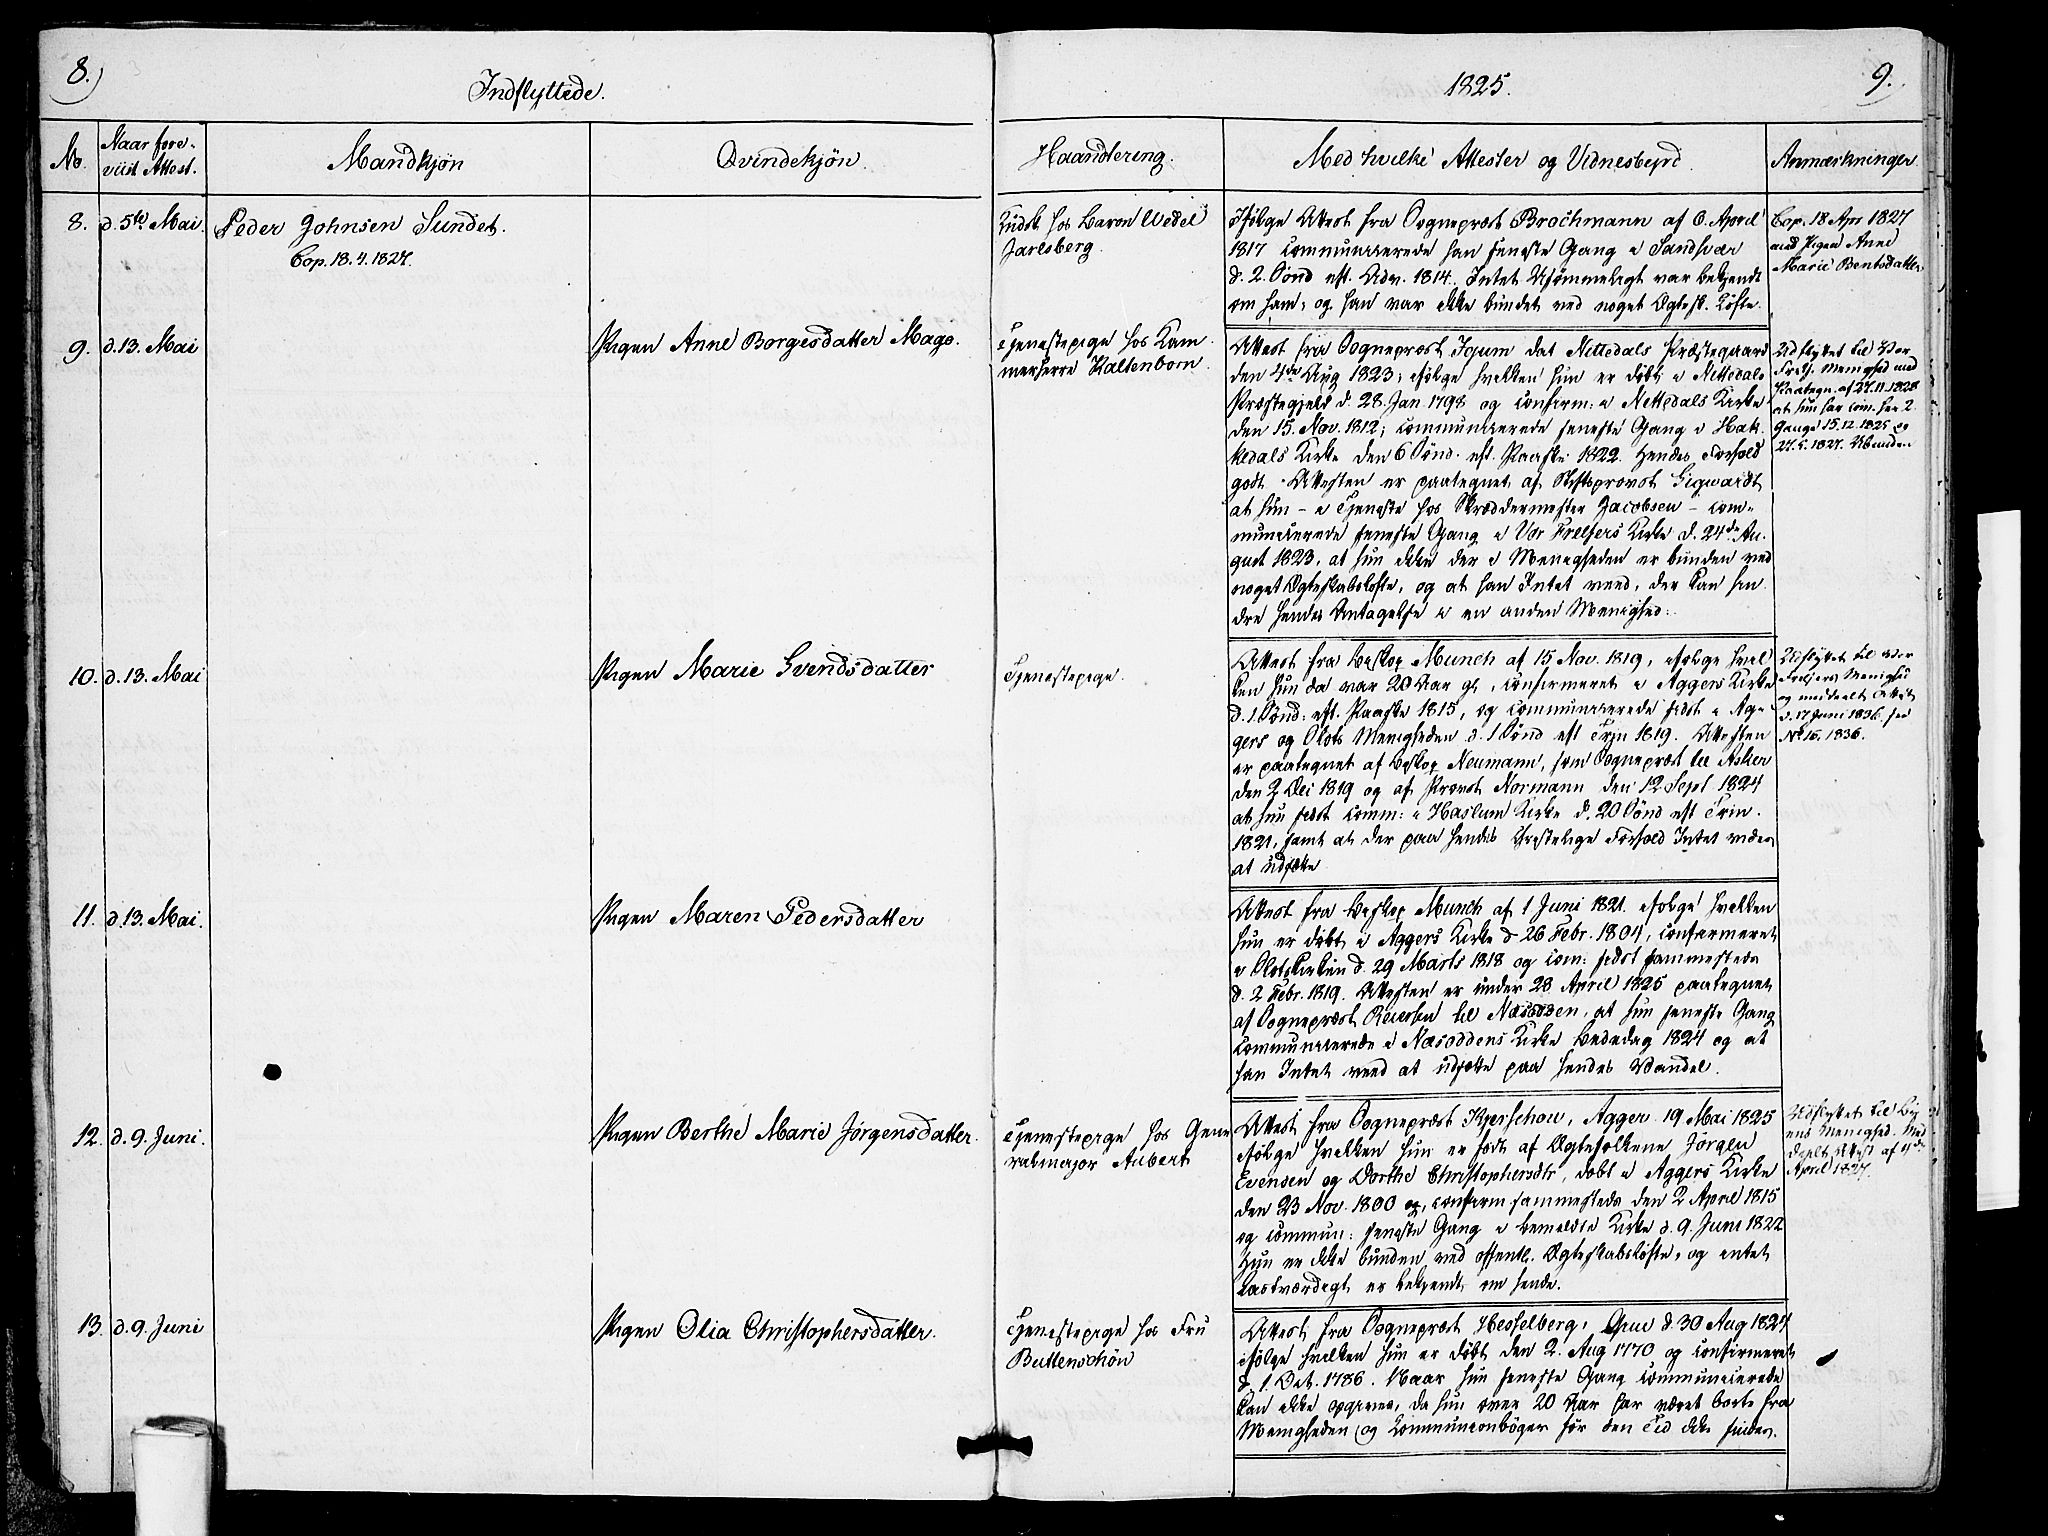 8.)
Indflyttede.
1825.
9.
No.
Naar fore-
viist Attest.
Mandkjøn
Qvindekjøn.
Haandtering.
Med hvilke Attester og Vidnesbyrd.
Anmærkninger
8. d. 5te Mai.
Peder Johnsen Sundet.
Cop. 18.4.1827.
Kudsk hos Baron Wedel
Jarlsberg.
Ifølge Attest fra Sognepræst Brochmann af 6. April
1817 communicerede han seneste Gang i Sandsvær
d. 2. Sønd. eft. Adv. 1814. Intet Usømmeligt var bekjendt
om ham, og han var ikke bundet ved noget Ægtesk. Løfte.
Cop. 18 Apr 1827
med Pigen Anne
Marie Bentsdatter
9. d. 13. Mai
Pigen Anne Borgesdatter Mago.
Tjenestepige hos Kam
merherre Kaltenborn.
Attest fra Sognepræst Irgum dat Nittedals Præstegaard
den 4de Aug 1823; ifølge hvilken hun er døbt i Nittedals
Præstegjeld d. 28. Jan 1798 og confirm: i Nittedals Kirke
den 15. Nov. 1812; communicerede seneste Gang i Hak
kedals Kirke den 6 Sønd. eft. Paaske 1822. Hendes Forhold
godt. Attesten er paategnet af Stiftsprovst Sigwardt
at hun – i Tjeneste hos Skræddermester Jacobsen – com-
municerede seneste Gang i Vor Frelsers Kirke d. 24de Au-
gust 1823, at hun ikke der i Menigheden er bunden ved
noget Ægteskabsløfte, og at han Intet veed, der kan hin
dre hendes Antagelse i en anden Menighed.
Udflyttet til Vor
Frels. Menighed med
Paategn. af 27.11.1828
at hun har com. her 2
Gange 15.12.1825 og
27.5.1827. Ubunden
10. d. 13. Mai
Pigen Marie Svendsdatter
Tjenestepige.
Attest fra Biskop Munch af 15 Nov. 1819, ifølge hvil
ken hun da var 20 Aar gl., confirmeret i Aggers Kirke
d. 1 Sønd: eft. Paaske 1815, og communicerede sidst i Ag-
gers og Olafs Menigheden d. 1 Sønd eft Trin 1819. Attesten
er paategnet af Biskop Neumann, som Sognepræst til Asker
den 2 Dec 1819 og af Provst Normann den 12 Sept 1824
at hun sidst comm: i Haslum Kirke d. 20 Sønd eft Trin.
1821, samt at der paa hendes Christelige Forhold Intet vides
at udsætte
Udflyttet til Vor
Frelsers Menighed
og meddeelt Attest
d. 17 Juni 1836. see
No 16. 1836.
11. d. 13. Mai.
Pigen Maren Pedersdatter
Attest fra Biskop Munch af 1 Juni 1821. ifølge hvilken
hun er døbt i Aggers Kirke d 26 Febr. 1804, confirmeret
i Olafskirken d. 29 Marts 1818 og com: sidst sammesteds
d. 2 Febr. 1819. Attesten er under 28 April 1825 paategnet
af Sognepræst Reiersen til Næsodden, at hun seneste Gang
communicerede i Næsoddens Kirke Bededag 1824 og at
han Intet veed at udsætte paa hendes Vandel.
12. d. 9. Juni.
Pigen Berthe Marie Jørgensdatter.
Tjenestepige hos Gene
ralmajor Aubert
Attest fra Sognepræst Kjerschou, Agger. 19 Mai 1825
ifølge hvilken hun er født af Ægtefolkene Jørgen
Evensen og Dorthe Christophersdtr, døbt i Aggers Kirke
den 23 Nov. 1800 og, confirm sammesteds den 2 April 1815
og commun: seneste Gang i bemeldte Kirke d. 9. Juni 1822
Hun er ikke bunden ved offentl. Ægteskabsløfte, og intet
Lastværdigt er bekjendt om hende.
Udflyttet til By
ens Menighed. Med
deelt Attest af 4de
April 1827.
13. d. 9. Juni
Pigen Olia Christophersdatter.
Tjenestepige hos Fru
Buttenschön
Attest fra Sognepræst Hesselberg, Grue d. 30 Aug 1824
ifølge hvilken hun er døbt den 2. Aug 1770 og confirmeret
d. 1. Oct. 1786. Naar hun seneste Gang communicerede
kan ikke opgives, da hun over 20 Aar har været borte fra
Menigheden og Communionbøger før den Tid ikke findes.